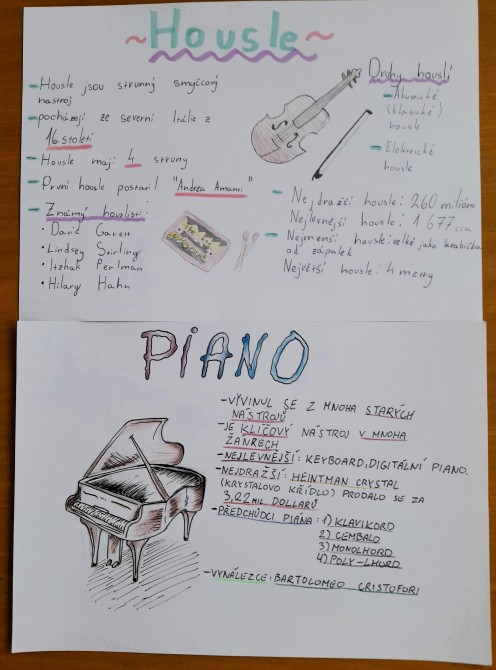 ~Housle~
- Housle jsou strunný smyčcový
nástroj
- pocházejí ze severní Itálie z
16. století
- Housle mají 4 struny
- První housle postavil "Andrea Amanni"
- Známý houslisti:
• David Garett
• Lindsey Stirling
• Itzhak Perlman
• Hilary Hahn
Druhy houslí
- Akustické
(klasické)
housle
- Elektrické
housle
- Nejdražší housle: 260 milionů
Nejlevnější housle: 1 677 cca
- Nejmenší housle: velké jako krabička
od zápalek
Největší housle: 4 metry
PIANO
- VYVINUL SE Z MNOHA STARÝCH
NÁSTROJŮ
- JE KLÍČOVÝ NÁSTROJ V MNOHA
ŽÁNRECH
- NEJLEVNĚJŠÍ: KEYBOARD, DIGITÁLNÍ PIANO.
- NEJDRAŽŠÍ: HEINTMAN CRYSTAL
(KRYSTALOVO KŘÍDLO) PRODALO SE ZA
3,22 MIL. DOLLARŮ
- PŘEDCHŮDCI PIANA: 1) KLAVIKORD
2) CEMBALO
3) MONOLHORD
4) POLY-LHORD
- VYNÁLEZCE: BARTOLOMEO CRISTOFORI